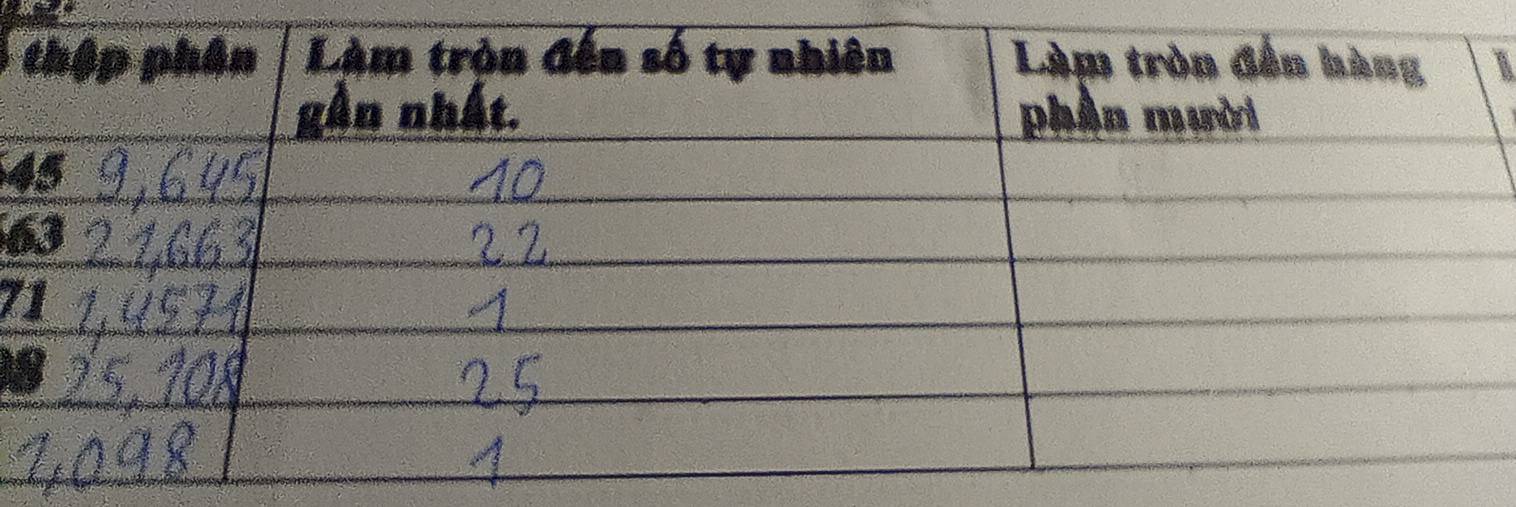 thập phân Làm tròn đến số tự nhiên Làm tròn đến hàng
gần nhất. phần mười
45 9,645 10
63 21,663 22
71 1,4571 1
25,108 25
1,098 1